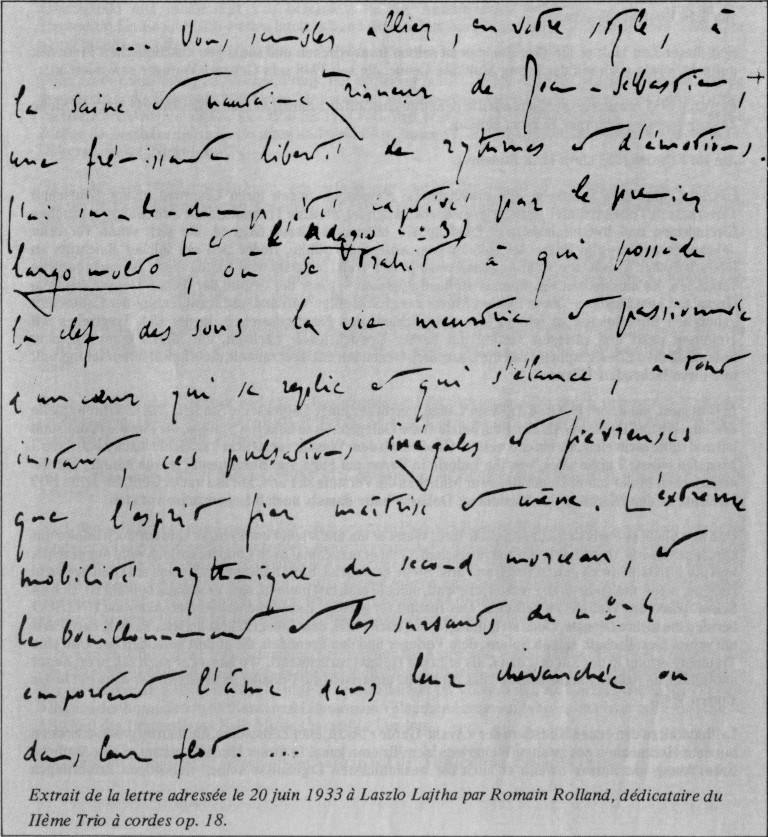 ... Vous semblez allier, en votre style, à
la saine et hautaine rigueur de Jean-Sébastien,
une frémissante liberté de rythmes et d'émotions.
J'ai sur-le-champ été captivé par le premier
[et l'Adagio nº 3]
largo molto, où se trahit à qui possède
la clef des sons la vie meurtrie et passionnée
d'un cœur qui se replie et qui s'élance, à tout
instant, ces pulsations inégales et fiévreuses
que l'esprit fier maîtrise et mène. L'extrême
mobilité rythmique du second morceau, et
le bouillonnement et les sursauts du nº 4
emportent l'âme dans leur chevauchée ou
dans leur flot ...
Extrait de la lettre adressée le 20 juin 1933 à Laszlo Lajtha par Romain Rolland, dédicataire du
IIème Trio à cordes op. 18.